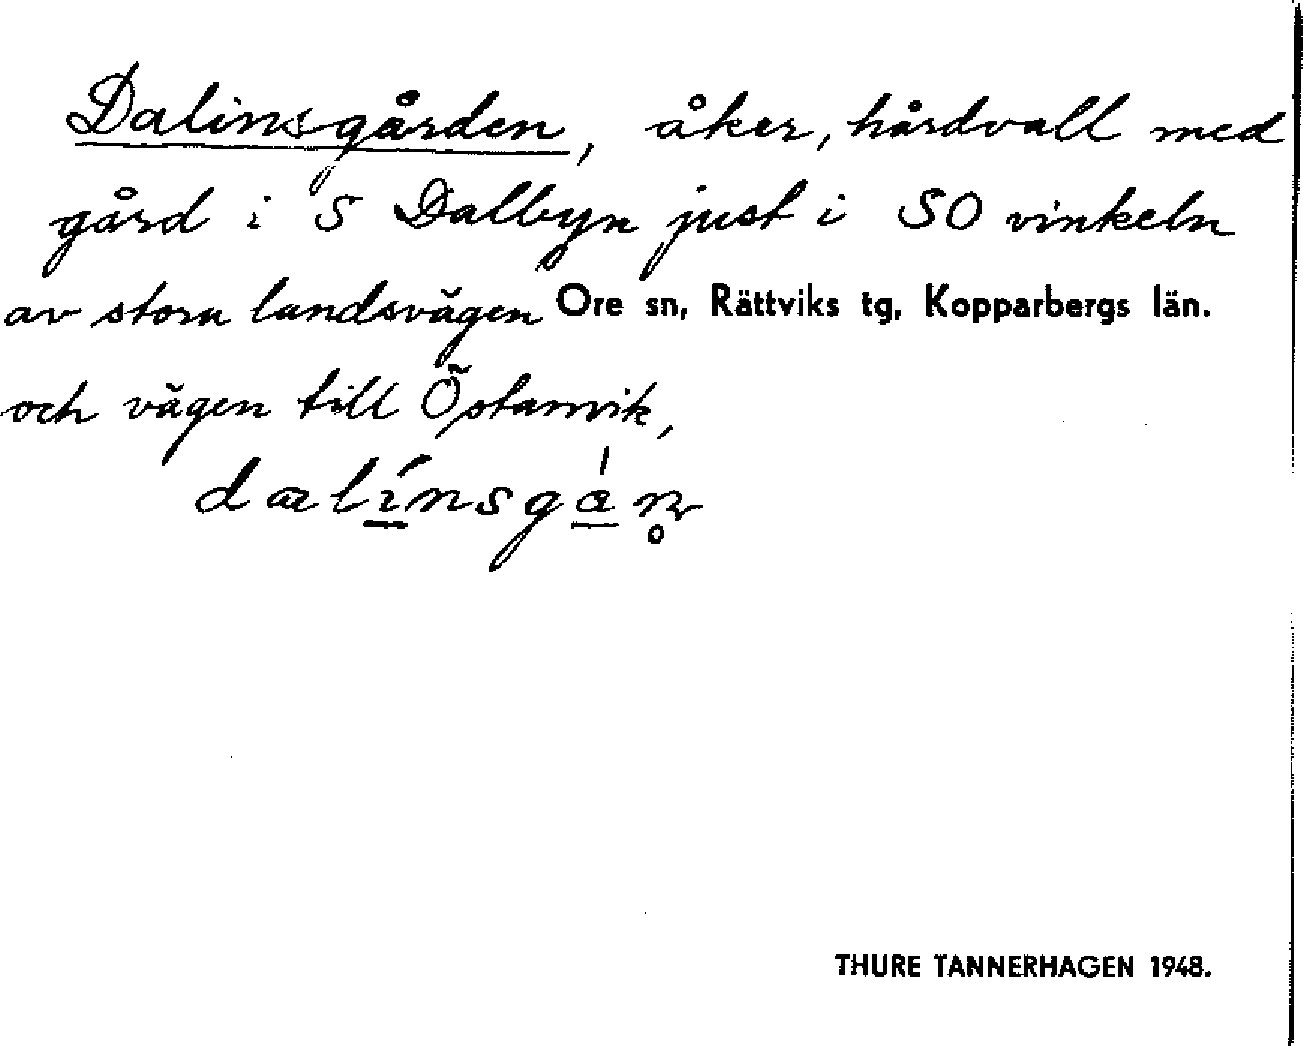 Dalinsgården, åker, hårdvall med
gård i S Dalbyn just i SO vinkeln
av stora landsvägen Ore sn, Rättviks tg, Kopparbergs län.
och vägen till Östanvik,
THURE TANNERHAGEN 1948.